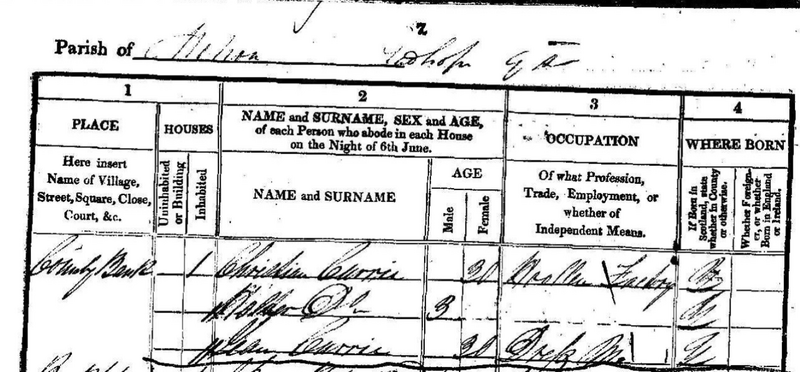 7
Parish of Melrose Ladhope Q S
1 2 3 4
PLACE HOUSES NAME and SURNAME, SEX and AGE, of each Person who abode in each House on the Night of 6th June. OCCUPATION WHERE BORN
Here insert Name of Village, Street, Square, Close, Court, &c.
Uninhabited or Building
Inhabited
NAME and SURNAME
AGE
Male
Female
Of what Profession, Trade, Employment, or whether of Independent Means.
If Born in Scotland, state whether in County or otherwise.
Whether Foreigner, or whether Born in England or Ireland.
County Bank 1 Christian Currie 30 Woollen Factory
Do 3
Jean Currie 30 Dress M